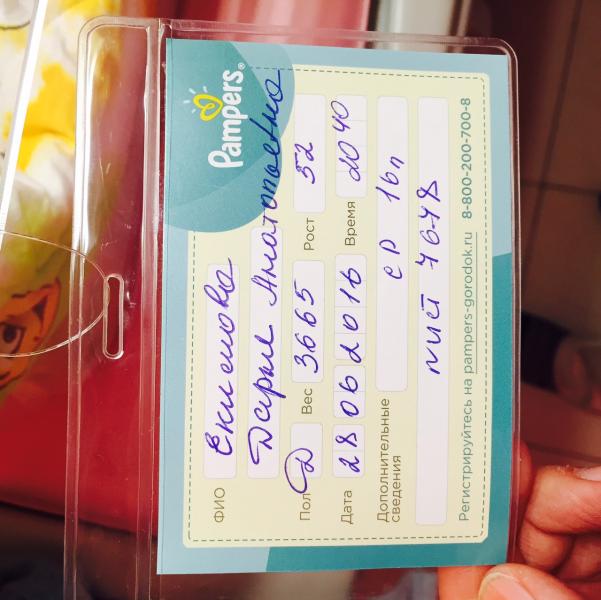 Pampers®
ФИО Екимова
Дарья Анатольевна
Пол Д Вес 3665 Рост 52
Дата 28 06 2016 Время 2040
Дополнительные сведения ср 16п
7648
Регистрируйтесь на pampers-gorodok.ru 8-800-200-700-8